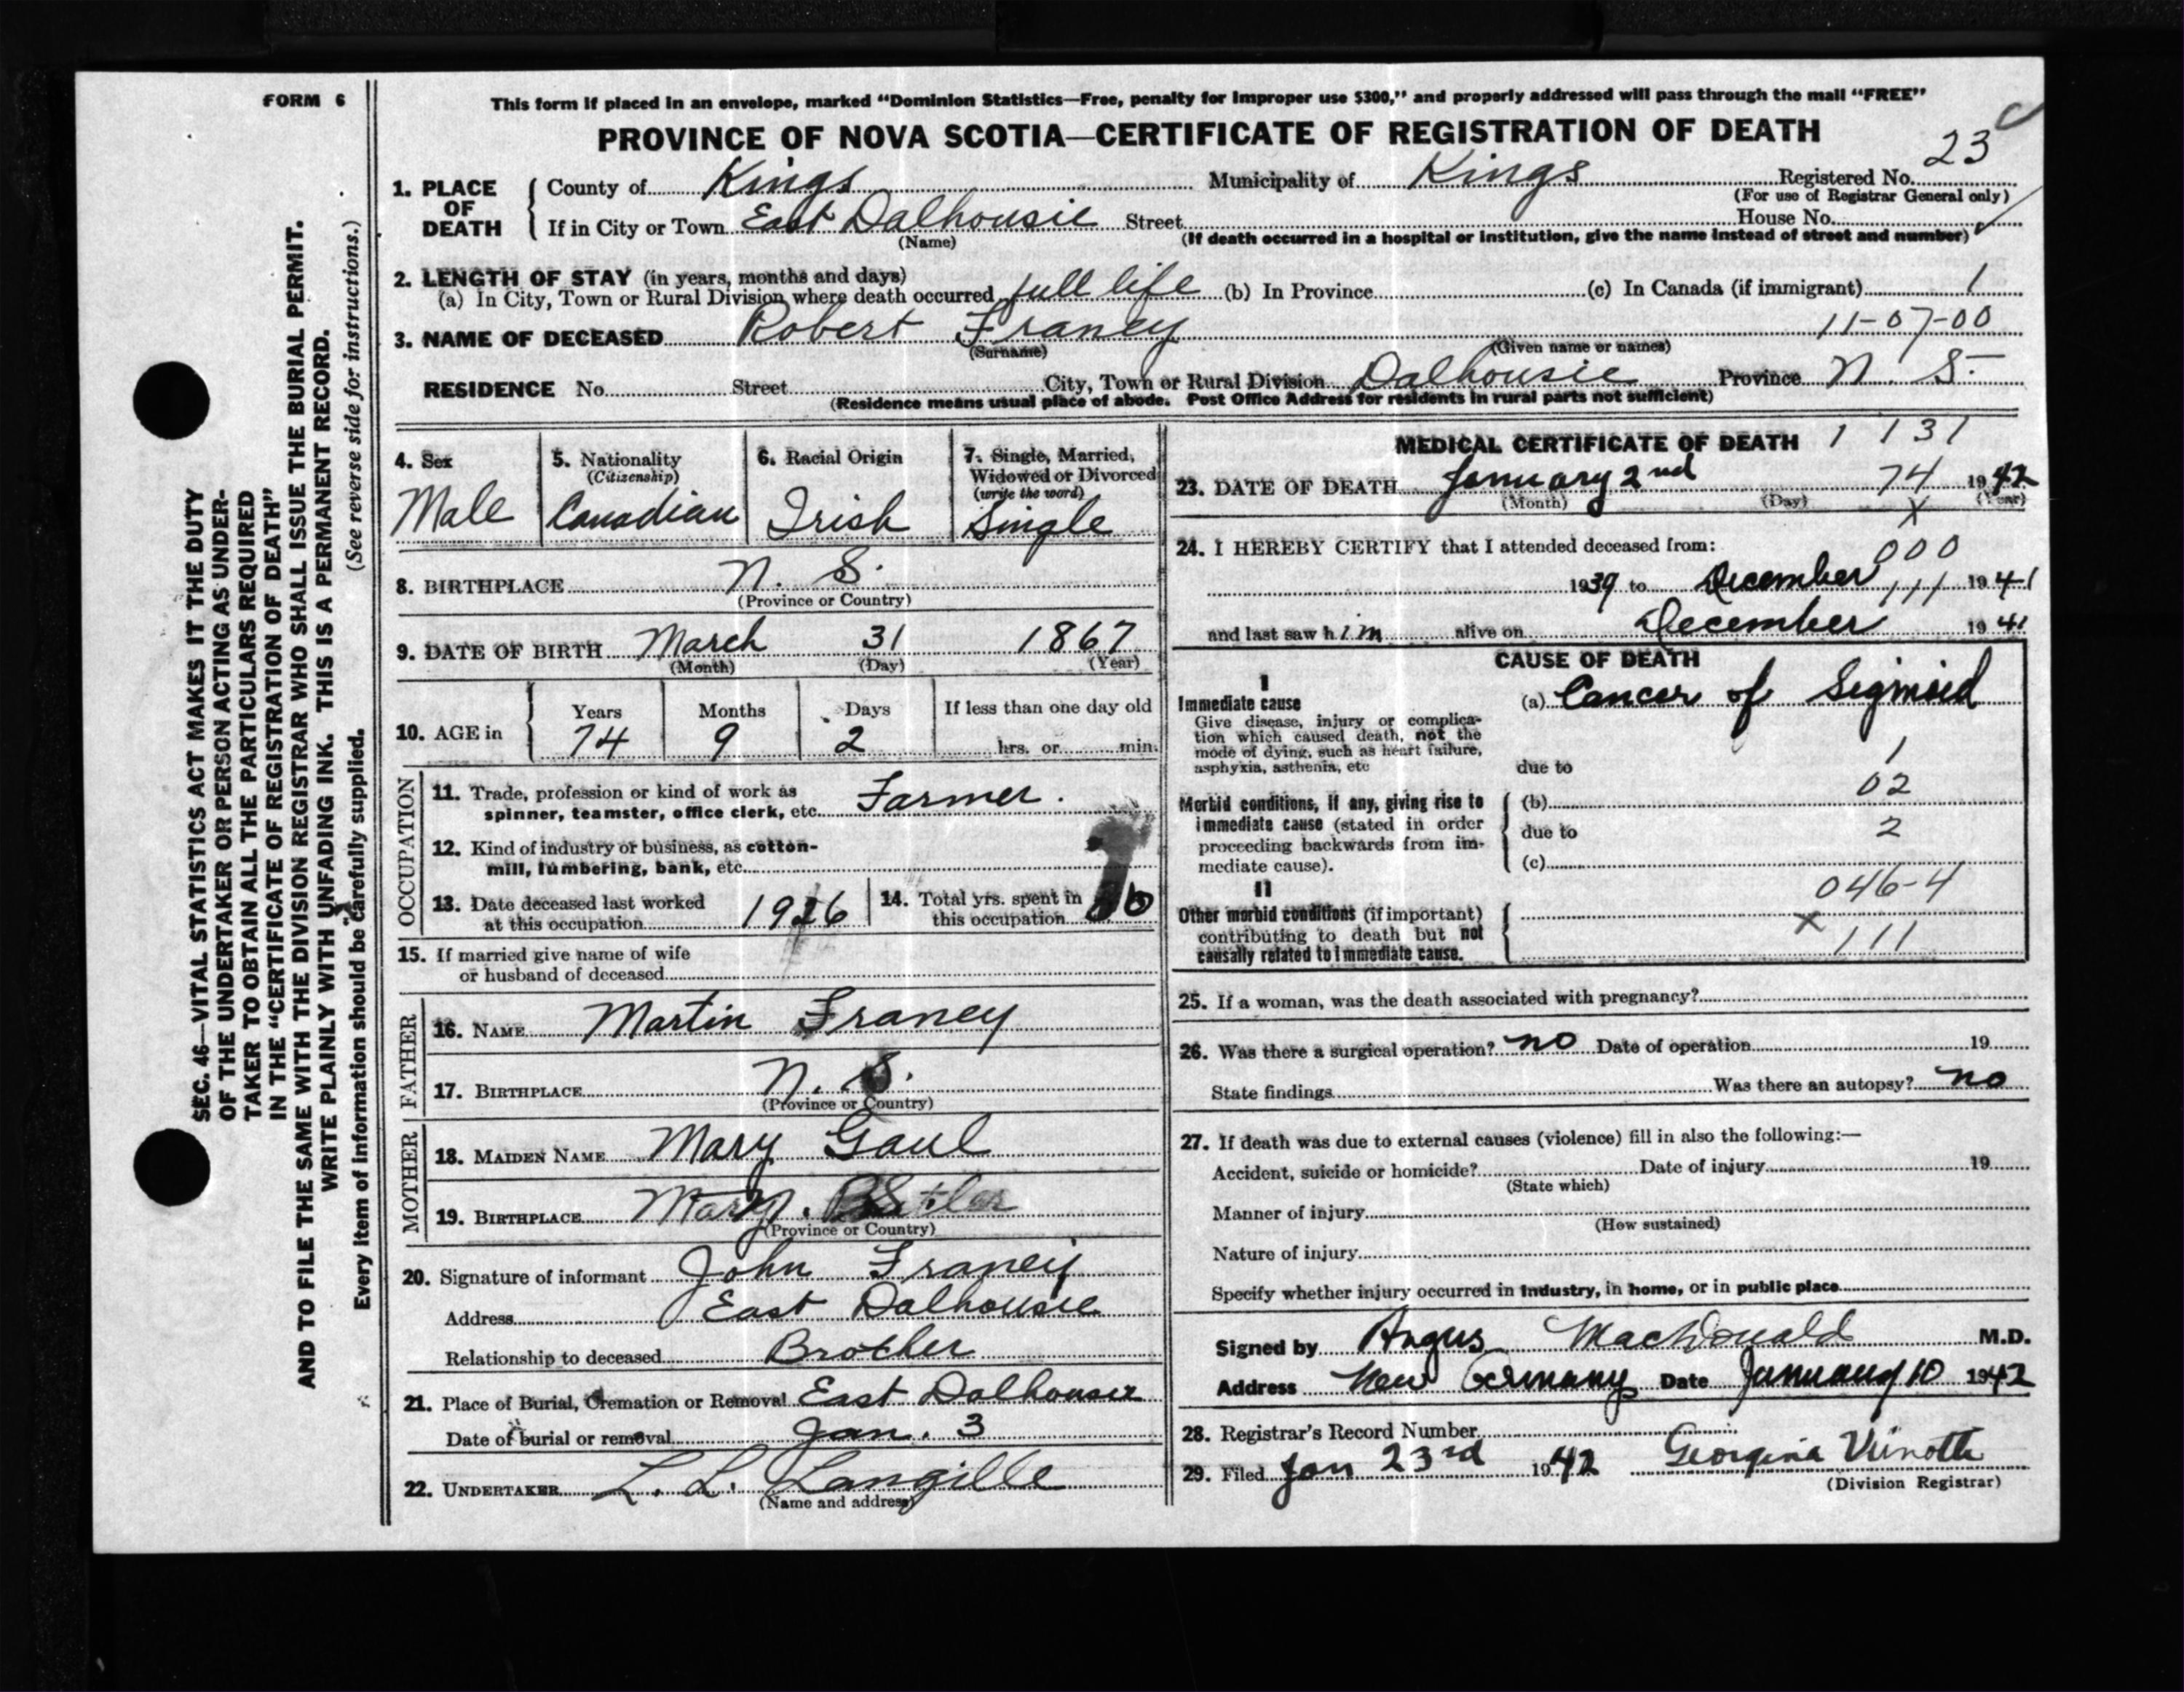 FORM 6
This form if placed in an envelope, marked "Dominion Statistics—Free, penalty for improper use $300," and properly addressed will pass through the mail "FREE"
PROVINCE OF NOVA SCOTIA—CERTIFICATE OF REGISTRATION OF DEATH
23
1. PLACE OF DEATH
County of Kings Municipality of Kings Registered No.
(For use of Registrar General only)
If in City or Town East Dalhousie Street House No.
(Name) (If death occurred in a hospital or institution, give the name instead of street and number)
2. LENGTH OF STAY (in years, months and days)
(a) In City, Town or Rural Division where death occurred full life (b) In Province (c) In Canada (if immigrant) 1
3. NAME OF DECEASED Robert Franey 11-07-00
(Surname) (Given name or names)
RESIDENCE No. Street City, Town or Rural Division Dalhousie Province N. S.
(Residence means usual place of abode. Post Office Address for residents in rural parts not sufficient)
4. Sex
Male
5. Nationality
(Citizenship)
Canadian
6. Racial Origin
Irish
7. Single, Married,
Widowed or Divorced
(write the word)
Single
8. BIRTHPLACE N. S.
(Province or Country)
9. DATE OF BIRTH March 31 1867
(Month) (Day) (Year)
10. AGE in Years Months Days If less than one day old
74 9 2 hrs. or min.
OCCUPATION
11. Trade, profession or kind of work as
spinner, teamster, office clerk, etc. Farmer.
12. Kind of industry or business, as cotton-
mill, lumbering, bank, etc.
13. Date deceased last worked
at this occupation
14. Total yrs. spent in
this occupation
15. If married give name of wife
or husband of deceased
FATHER
16. NAME Martin Franey
17. BIRTHPLACE N. S.
(Province or Country)
MOTHER
18. MAIDEN NAME Mary Gaul
19. BIRTHPLACE
(Province or Country)
20. Signature of informant John Franey
Address East Dalhousie
Relationship to deceased Brother
21. Place of Burial, Cremation or Removal East Dalhousie
Date of burial or removal Jan. 3
22. UNDERTAKER L. L. Langille
(Name and address)
MEDICAL CERTIFICATE OF DEATH 1 131
23. DATE OF DEATH January 2nd 74 1942
(Month) (Day) (Year)
X
24. I HEREBY CERTIFY that I attended deceased from:
000
1939 to December 111 1941
and last saw him alive on December 1941
CAUSE OF DEATH
I
Immediate cause
Give disease, injury or complica-
tion which caused death, not the
mode of dying, such as heart failure,
asphyxia, asthenia, etc
(a) Cancer of Sigmoid
1
due to
02
Morbid conditions, if any, giving rise to
immediate cause (stated in order
proceeding backwards from im-
mediate cause).
(b)
due to 2
(c)
046-4
II
Other morbid conditions (if important)
contributing to death but not
causally related to immediate cause.
x
111
25. If a woman, was the death associated with pregnancy?
26. Was there a surgical operation? no Date of operation 19
State findings Was there an autopsy? no
27. If death was due to external causes (violence) fill in also the following:—
Accident, suicide or homicide? Date of injury 19
(State which)
Manner of injury
(How sustained)
Nature of injury
Specify whether injury occurred in industry, in home, or in public place
Signed by Angus MacDonald M.D.
Address New Germany Date January 10 1942
28. Registrar's Record Number
29. Filed Jan 23rd 1942 Georgina
(Division Registrar)
SEC. 46—VITAL STATISTICS ACT MAKES IT THE DUTY
OF THE UNDERTAKER OR PERSON ACTING AS UNDER-
TAKER TO OBTAIN ALL THE PARTICULARS REQUIRED
IN THE "CERTIFICATE OF REGISTRATION OF DEATH"
AND TO FILE THE SAME WITH THE DIVISION REGISTRAR WHO SHALL ISSUE THE BURIAL PERMIT.
WRITE PLAINLY WITH UNFADING INK. THIS IS A PERMANENT RECORD.
Every item of information should be carefully supplied. (See reverse side for instructions.)